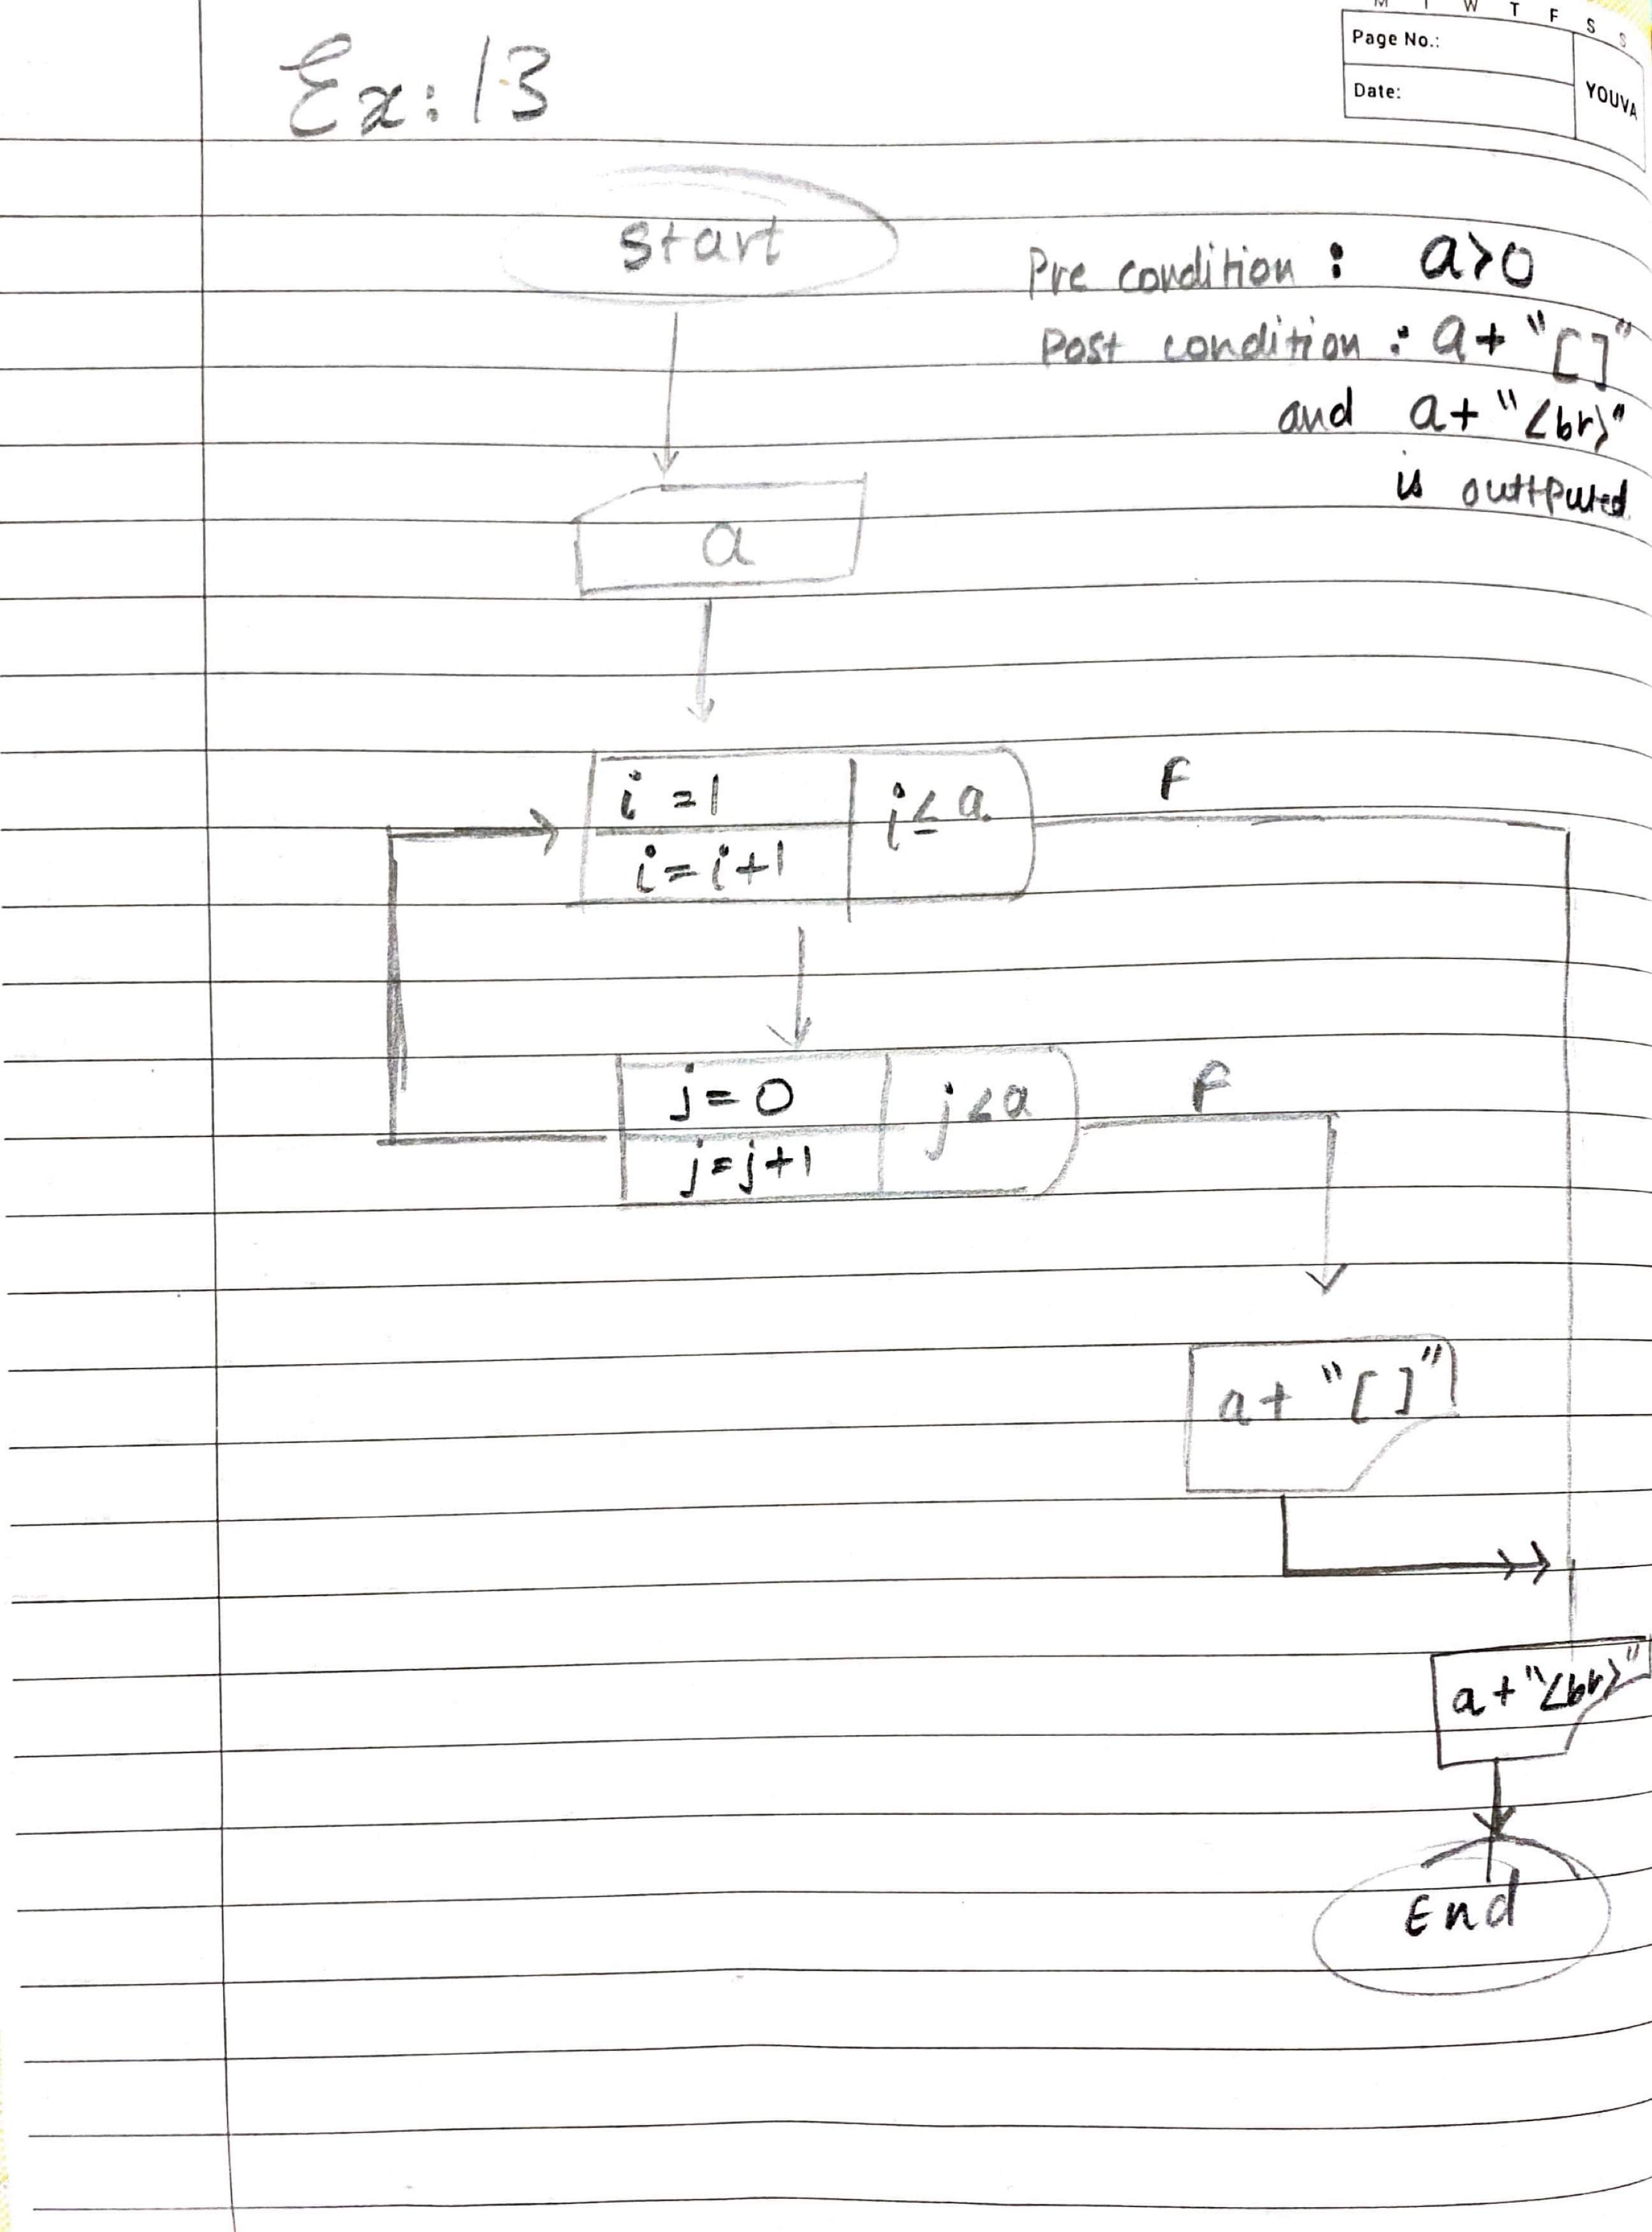 M T W T F S S
Page No.:
Date:
YOUVA
Ex: 13
start
Pre condition : a>0
Post condition : a+ "[]"
and a+ "<br>"
is outtputed
a
i = 1
i = i+1
i ≤ a
F
j = 0
j = j+1
j < a
F
a + "[ ]"
a + "<br>"
End